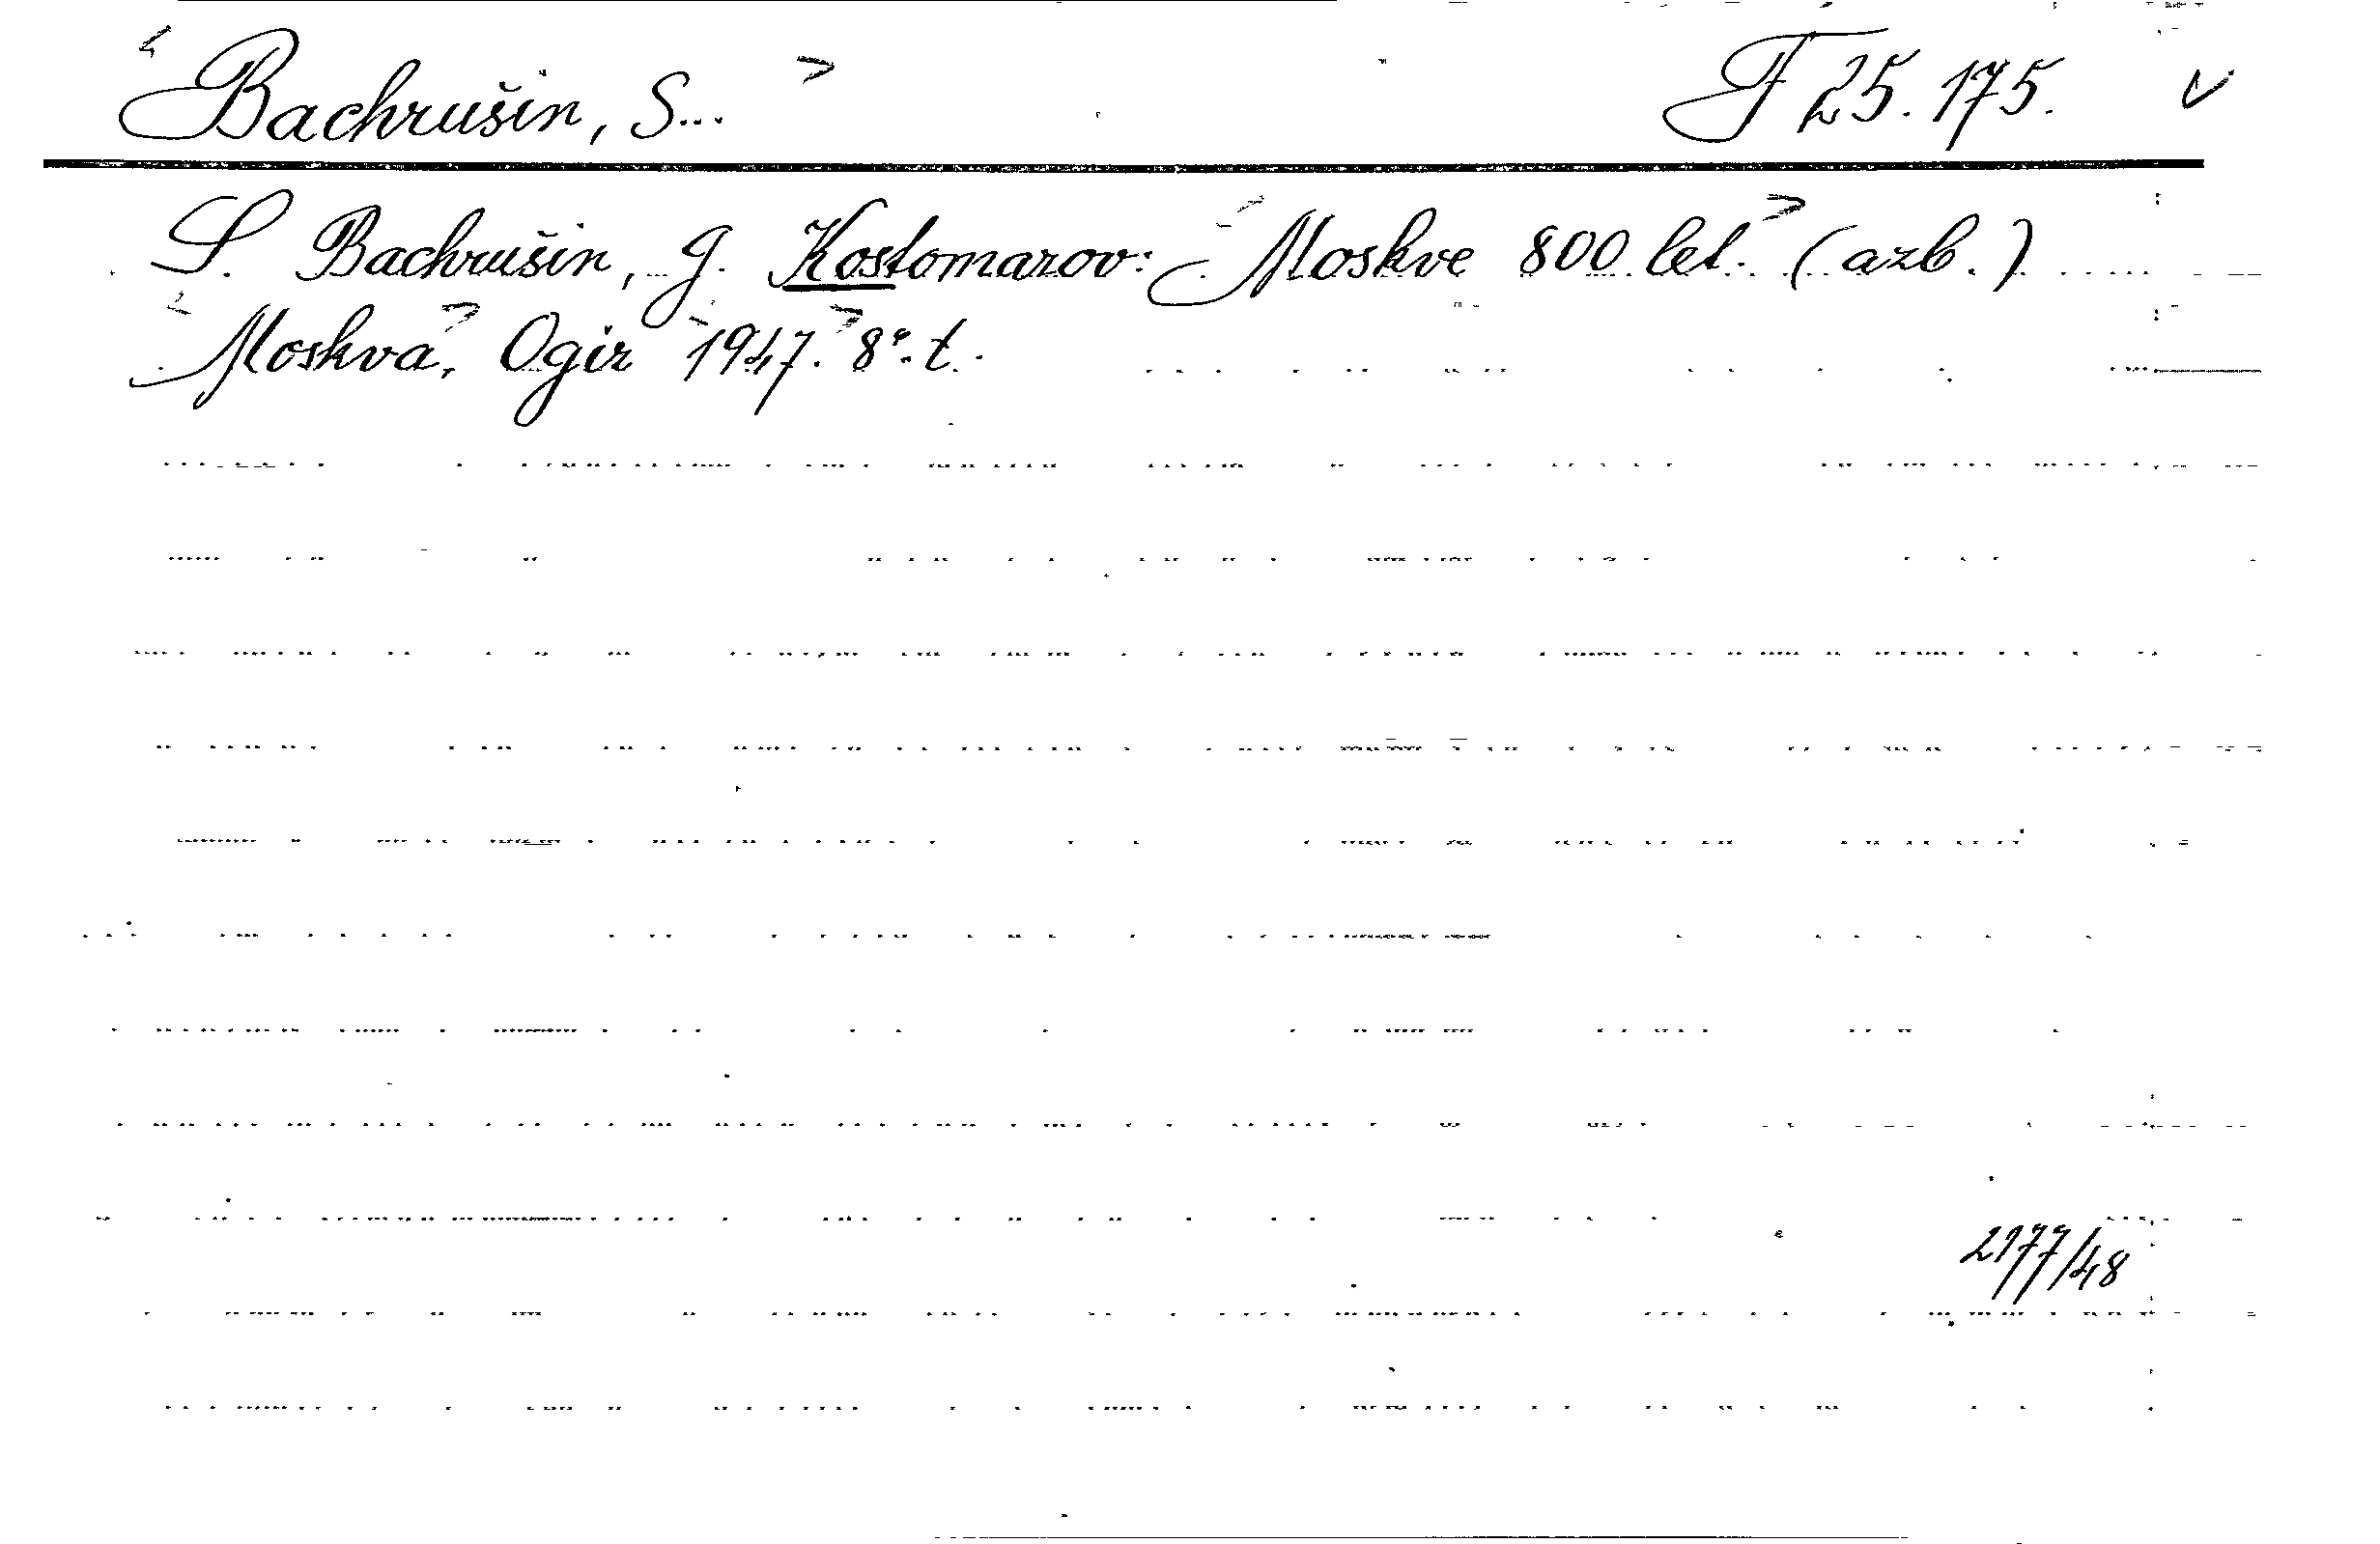 Bachrušin, S... F 25.175.
S. Bachrušin, G. Kostomarov: Moskve 800 let. (azb.)
Moskva, Ogiz 1947. 8°. t.
2177/48